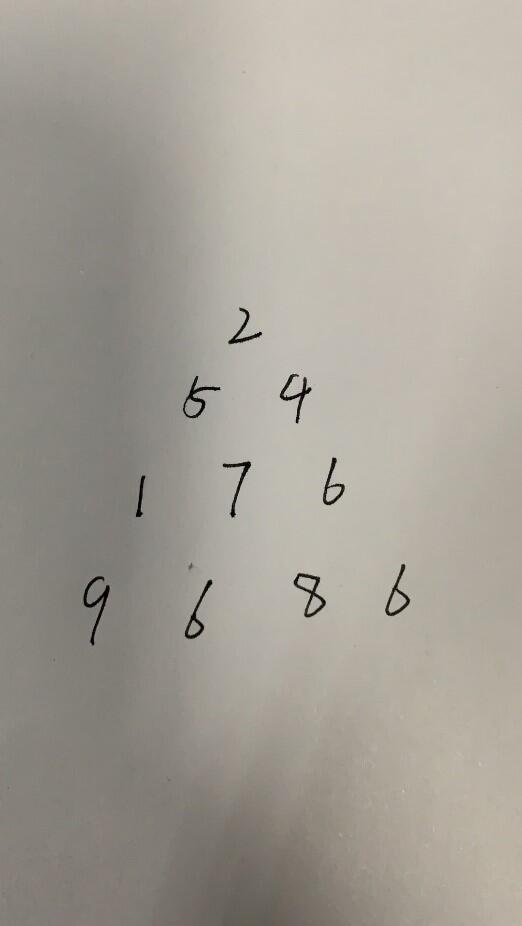 2
5 4
1 7 6
9 6 8 6